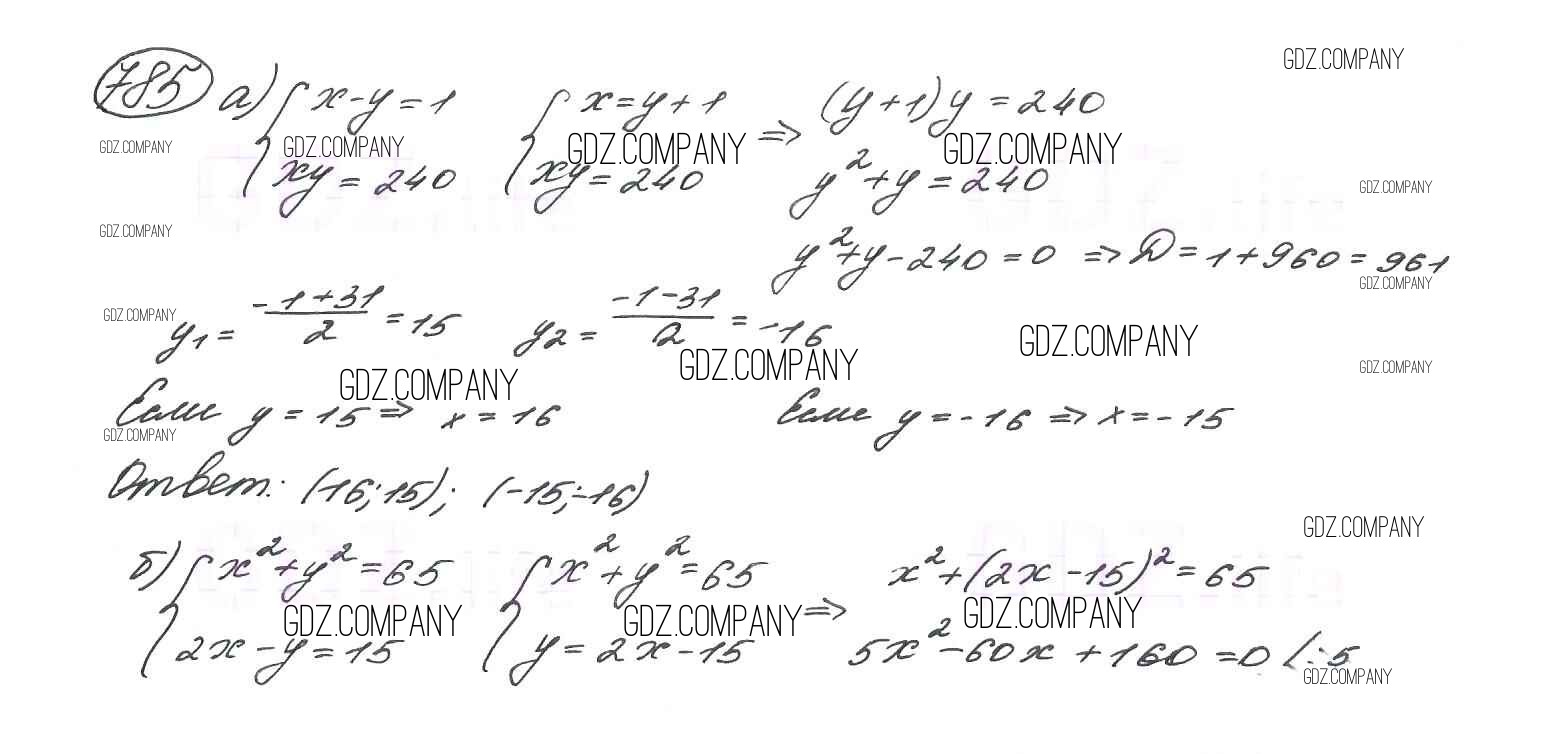 GDZ.COMPANY
785 а) { x - y = 1 { x = y + 1 (y + 1) y = 240
GDZ.COMPANY GDZ.COMPANY GDZ.COMPANY ⇒ GDZ.COMPANY
xy = 240 xy = 240 y² + y = 240
GDZ.COMPANY
GDZ.COMPANY
y² + y - 240 = 0 ⇒ D = 1 + 960 = 961
GDZ.COMPANY
GDZ.COMPANY
y₁ = (-1 + 31)/2 = 15 y₂ = (-1 - 31)/2 = -16
GDZ.COMPANY
GDZ.COMPANY
GDZ.COMPANY
GDZ.COMPANY
Если y = 15 ⇒ x = 16 Если y = -16 ⇒ x = -15
GDZ.COMPANY
Ответ: (16; 15); (-15; -16)
GDZ.COMPANY
б) { x² + y² = 65 { x² + y² = 65 x² + (2x - 15)² = 65
GDZ.COMPANY GDZ.COMPANY ⇒ GDZ.COMPANY
2x - y = 15 y = 2x - 15 5x² - 60x + 160 = 0 |:5
GDZ.COMPANY